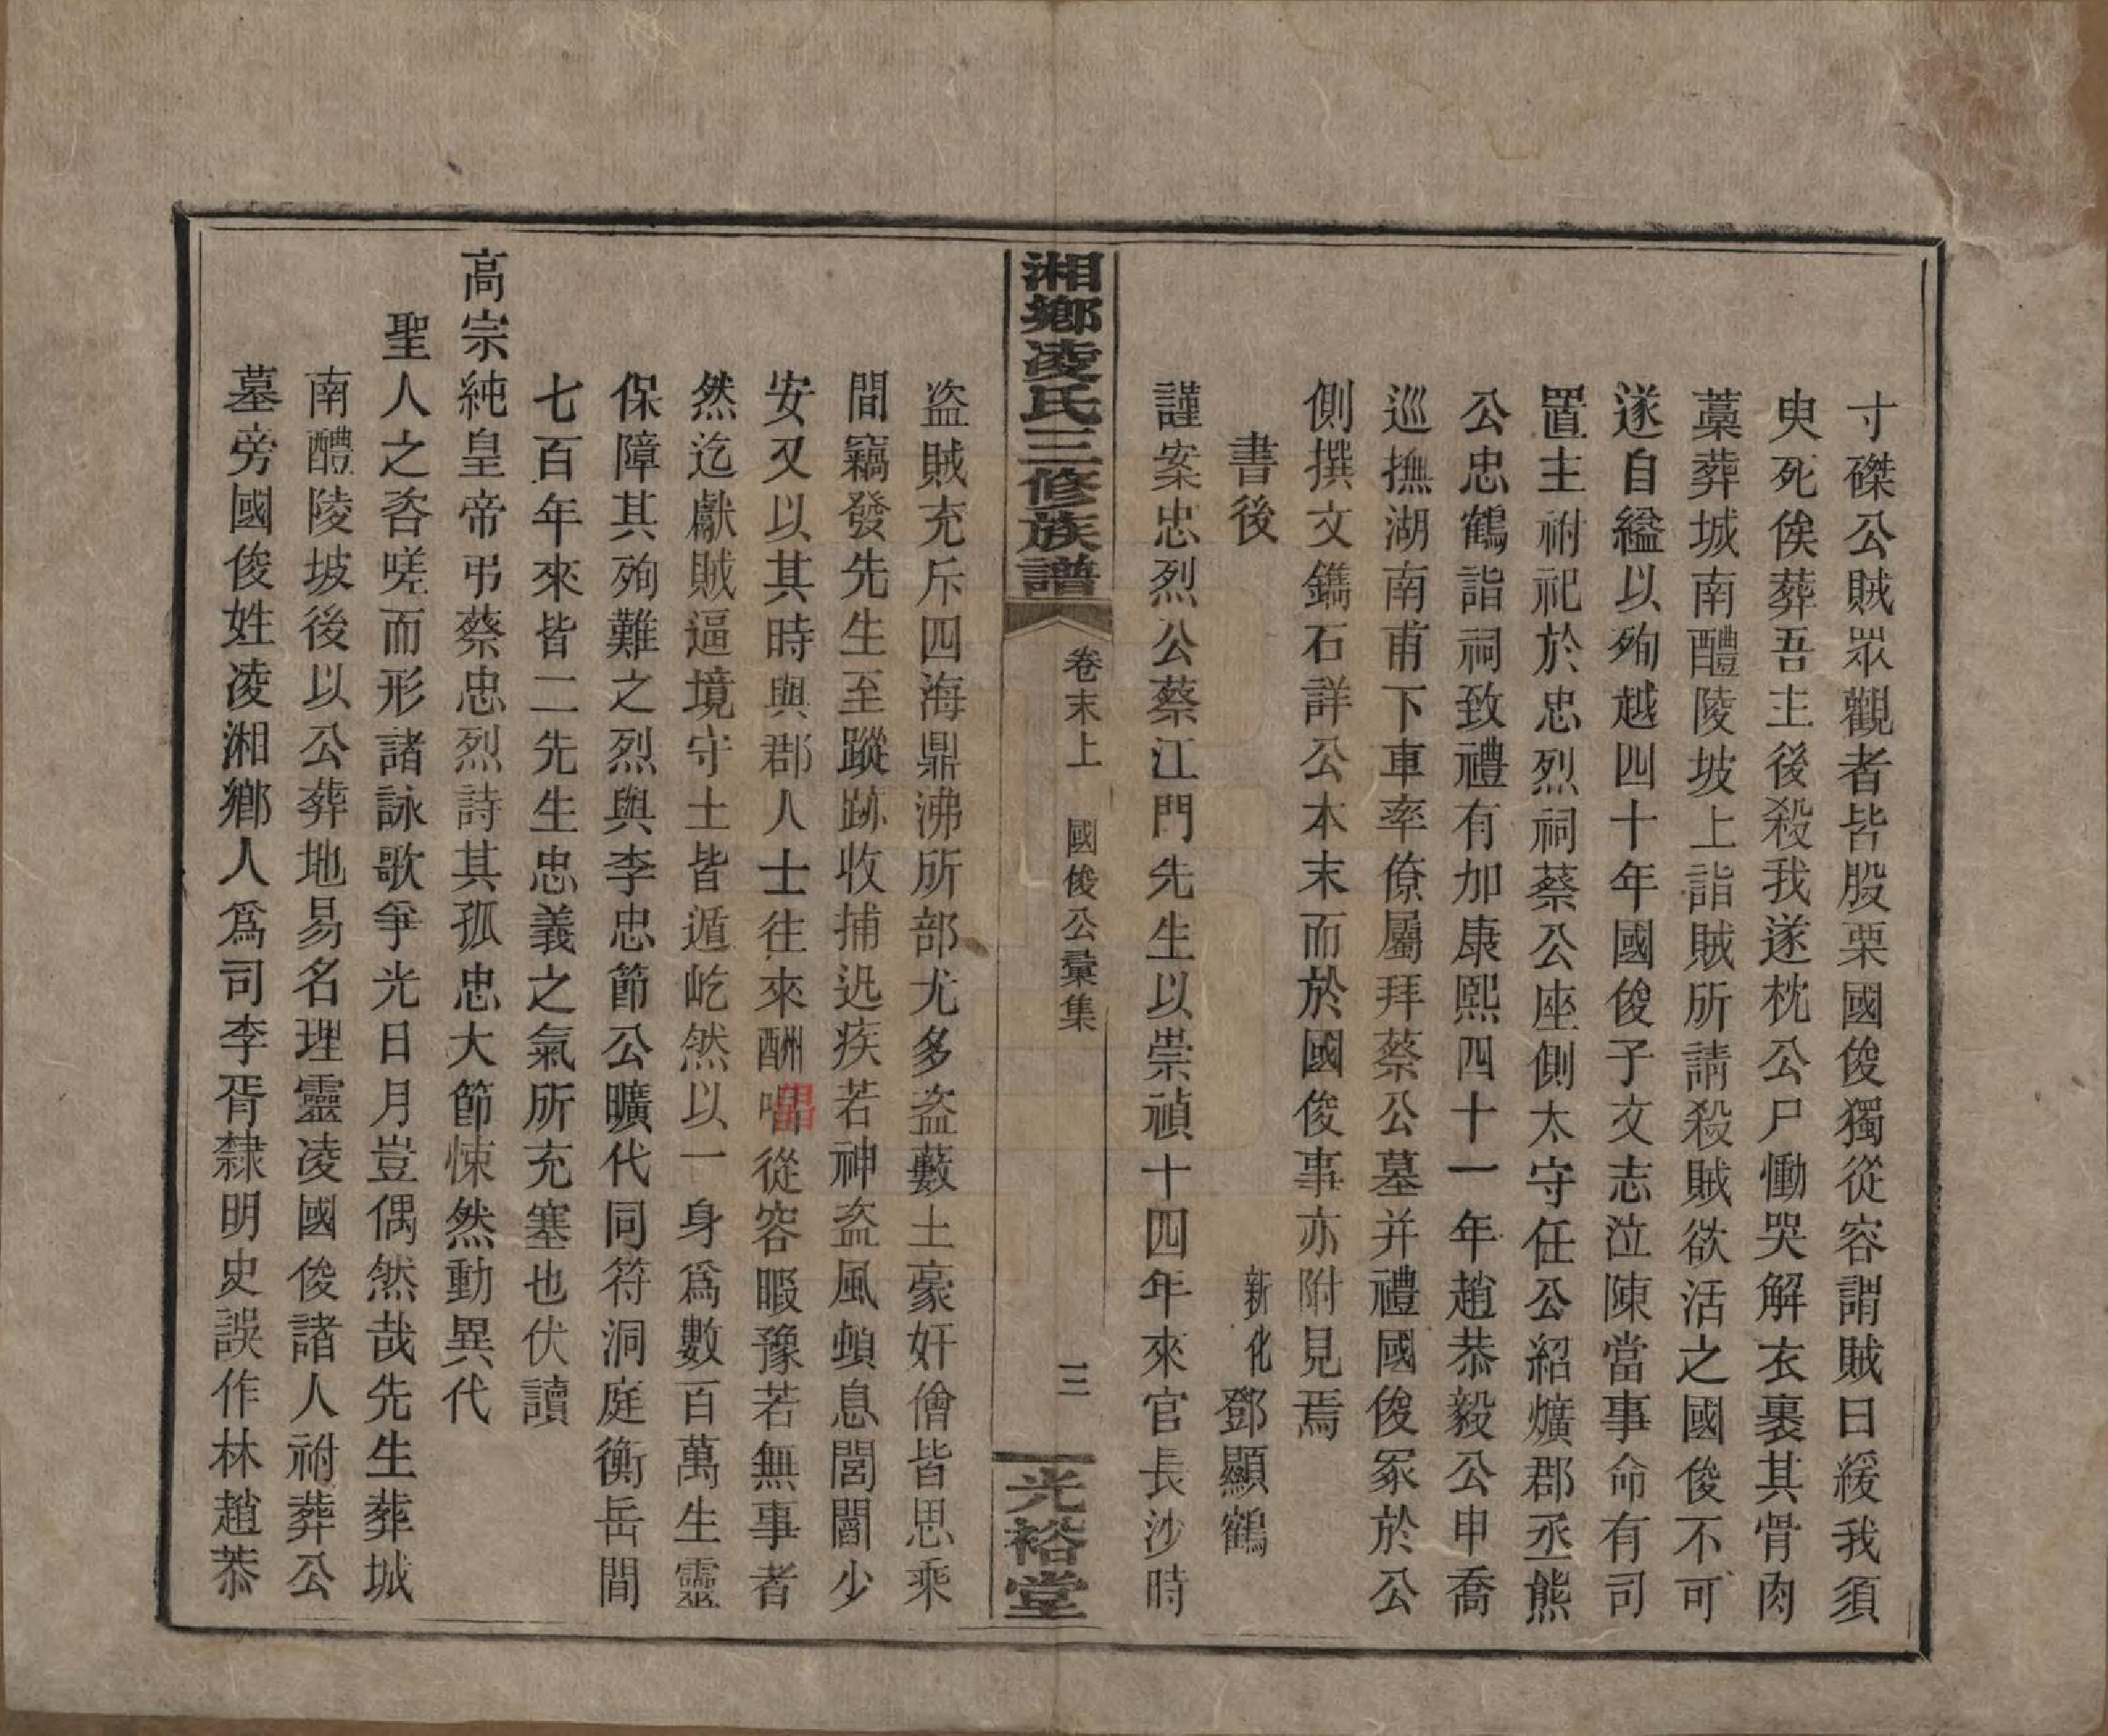 寸磔公賊眾觀者皆股栗國俊獨從容謂賊曰緩我須
臾死俟葬吾主後殺我遂枕公尸慟哭解衣裹其骨肉
藁葬城南醴陵坡上詣賊所請殺賊欲活之國俊不可
遂自縊以殉越四十年國俊子文志泣陳當事命有司
置主祔祀於忠烈祠蔡公座側太守任公紹爌郡丞熊
公忠鶴詣祠致禮有加康熙四十一年趙恭毅公申喬
巡撫湖南甫下車率僚屬拜蔡公墓并禮國俊冢於公
側撰文鐫石詳公本末而於國俊事亦附見焉
書後
新化鄧顯鶴
謹案忠烈公蔡江門先生以崇禎十四年來官長沙時
湘鄉凌氏三修族譜
卷末上 國俊公彙集
三
光裕堂
盜賊充斥四海鼎沸所部尤多盜藪土豪奸儈皆思乘
間竊發先生至蹤跡收捕迅疾若神盜風頓息閭閻少
安又以其時與郡人士往來酬唱從容暇豫若無事者
然迄獻賊逼境守土皆遁屹然以一身為數百萬生靈
保障其殉難之烈與李忠節公曠代同符洞庭衡岳間
七百年來皆二先生忠義之氣所充塞也伏讀
高宗純皇帝弔蔡忠烈詩其孤忠大節悚然動異代
聖人之咨嗟而形諸詠歌爭光日月豈偶然哉先生葬城
南醴陵坡後以公葬地易名理靈凌國俊諸人祔葬公
墓旁國俊姓凌湘鄉人爲司李胥隸明史誤作林趙恭